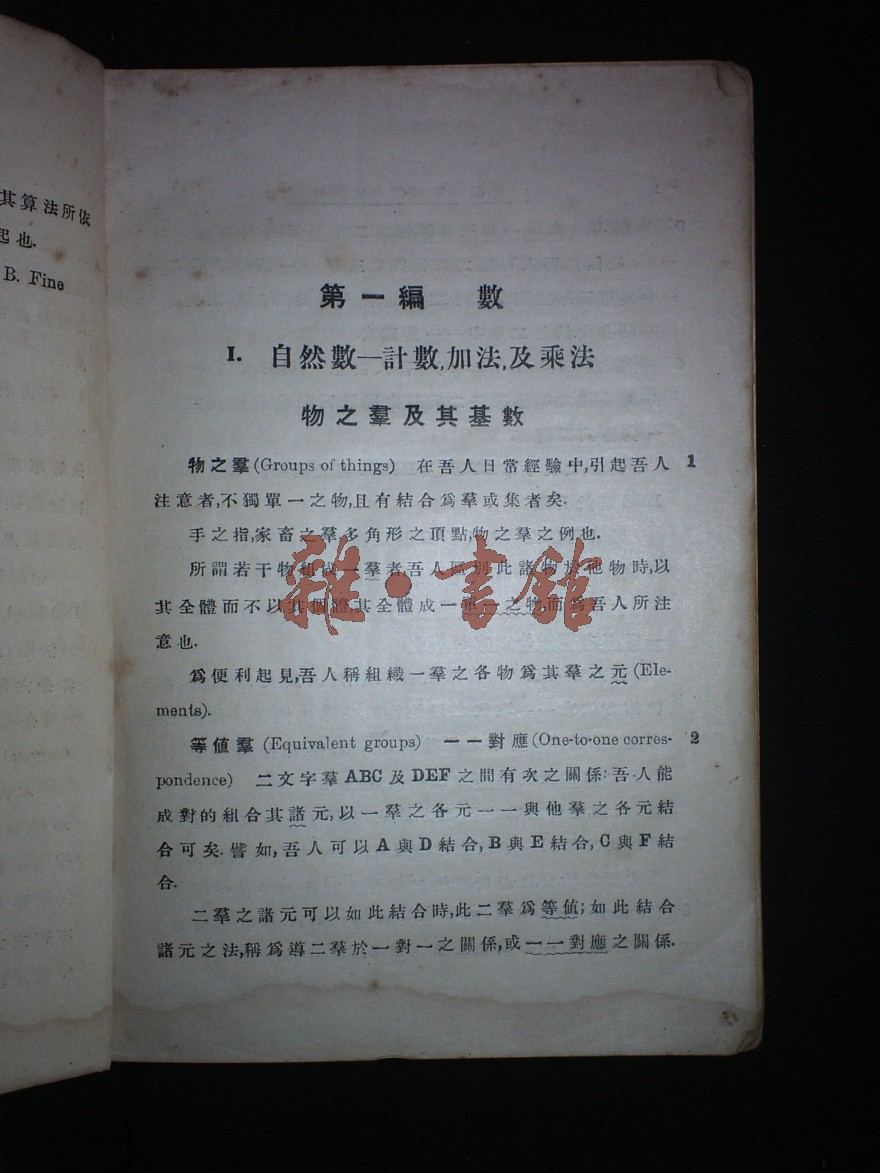 其算法所依
起也.
B. Fine
第一編 數
I. 自然數—計數,加法,及乘法
物之羣及其基數
物之羣(Groups of things) 在吾人日常經驗中,引起吾人 1
注意者,不獨單一之物,且有結合爲羣或集者矣.
手之指,家畜之羣,多角形之頂點,物之羣之例也.
所謂若干物組成一羣者,吾人區別此諸物於他物時,以
其全體而不以其個體,其全體成一單一之物,而爲吾人所注
意也.
爲便利起見,吾人稱組織一羣之各物爲其羣之元(Ele-
ments).
等値羣(Equivalent groups) 一一對應(One-to-one corres- 2
pondence) 二文字羣ABC及DEF之間有次之關係:吾人能
成對的組合其諸元,以一羣之各元一一與他羣之各元結
合可矣.譬如,吾人可以A與D結合,B與E結合,C與F結
合.
二羣之諸元可以如此結合時,此二羣爲等値;如此結合
諸元之法,稱爲導二羣於一對一之關係,或一一對應之關係.
雜·書館